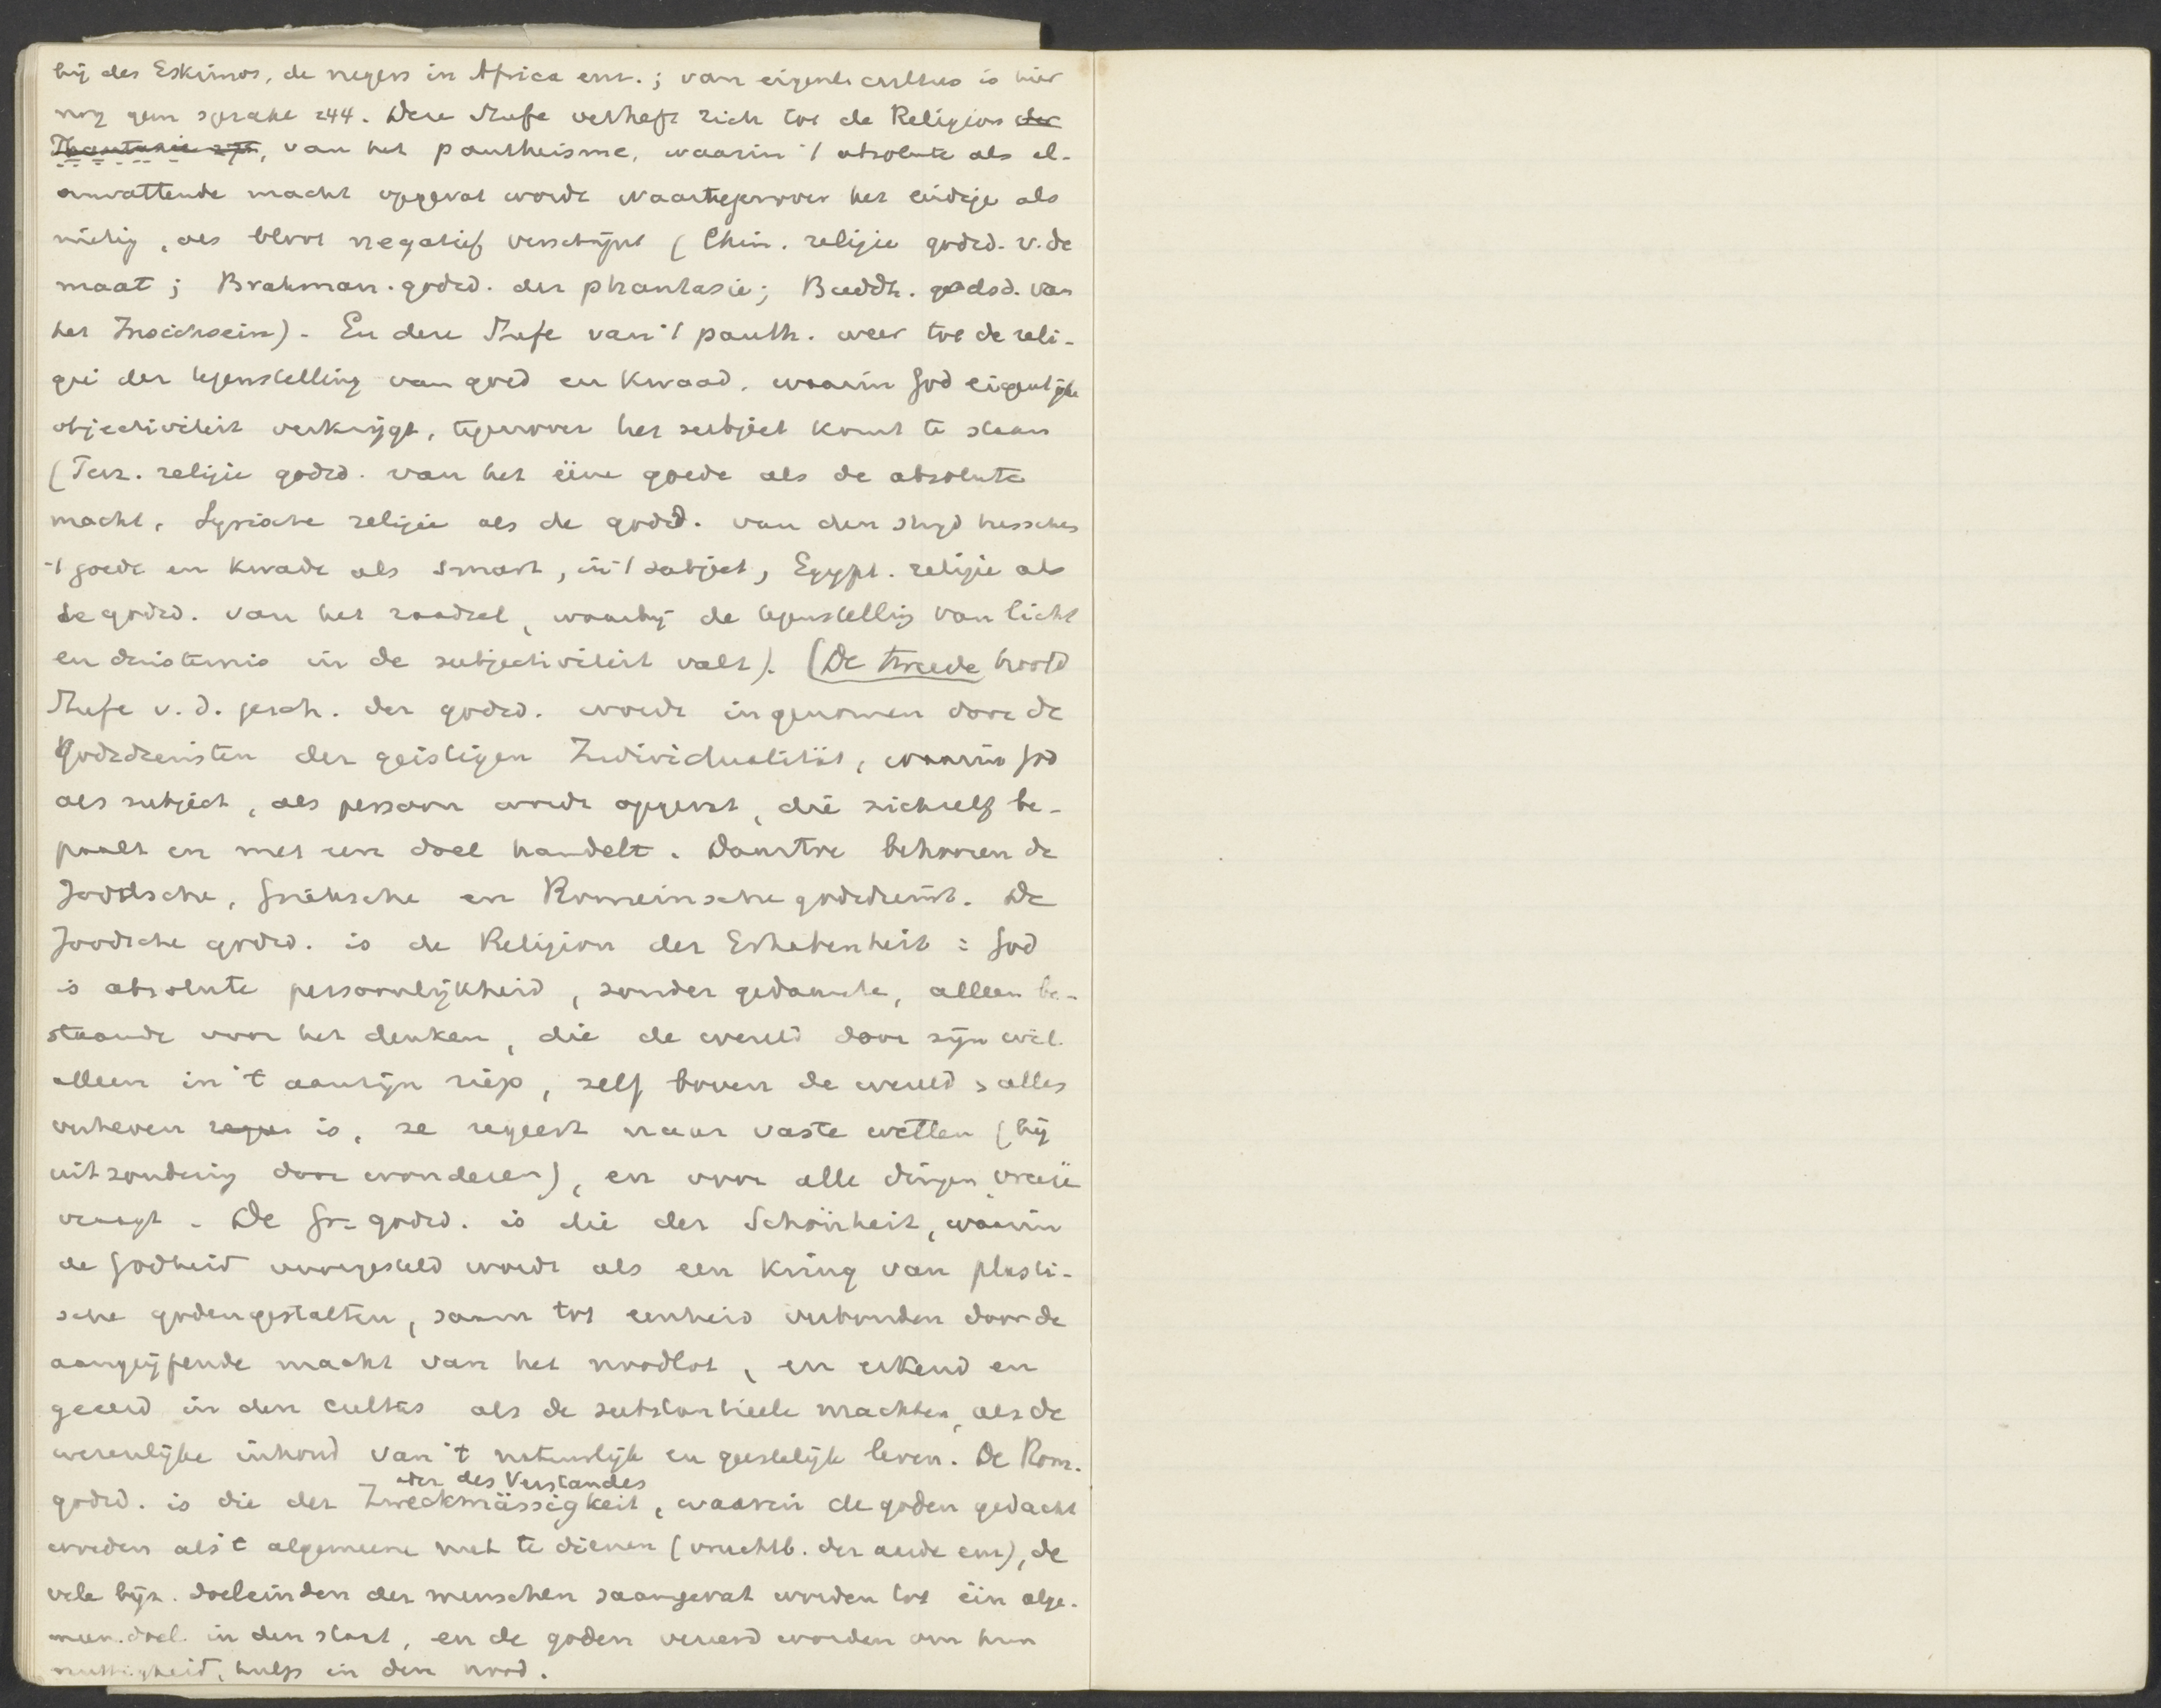 bij des Eskimos, de negers in Africa enz.; van eigenl. cultus is hier
nog geen sprake 244. Deze Stufe verheft zich tot de Religion der
Phantasie 2ff, van het pantheisme, waarin 't absolute als al-
omvattende macht opgevat wordt waartegenover het eindige als
nietig, als bloot negatief verschijnt (Chin. religie godsd. v. de
maat; Brahman. godsd. der phantasie; Buddh. godsd. van
het Insichsein). En deze Stufe van 't panth. weer tot de reli-
gie der tegenstelling van goed en kwaad, waarin God eigenlijke
objectiviteit verkrijgt, tegenover het subject komt te staan
(Perz. religie godsd. van het ééne goede als de absolute
macht, Syrische religie als de godsd. van den strijd tusschen
't goede en kwade als smart, in 't subject, Egypt. religie als
de godsd. van het raadsel, waarbij de tegenstelling van licht
en duisternis in de subjectiviteit valt). (De tweede hoofd
Stufe v. d. gesch. der godsd. wordt ingenomen door de
Godsdiensten der geistigen Individualität, waarin God
als subject, als persoon wordt opgevat, die zichzelf be-
paalt en met een doel handelt. Daartoe behooren de
Joodsche, Grieksche en Romeinsche godsdienst. De
Joodsche godsd. is de Religion der Erhabenheit: God
is absolute persoonlijkheid, zonder gedaante, alleen be-
staande voor het denken, die de wereld door zijn wil
alleen in 't aanzijn riep, zelf boven de wereld alles
verheven reger is, ze regeert naar vaste wetten (bij
uitzondering door wonderen), en voor alle dingen vreeze
vraagt. De Gr. godsd. is die der Schönheit, waarin
de Godheid voorgesteld wordt als een kring van plasti-
sche godengestalten, saam tot eenheid verbonden door de
aangrijpende macht van het noodlot, en erkend en
geeerd in den cultus als de substantieele machten, als de
wezenlijke inhoud van 't natuurlijk en geestelijk leven. De Rom.
der des Verstandes
godsd. is die der Zweckmässigkeit, waarin de goden gedacht
worden als 't algemeene nut te dienen (vruchtb. der aarde enz), de
vele bijz. doeleinden der menschen saamgevat worden tot één alge-
meen. doel. in den staat, en de goden vereerd worden om hun
nuttigheid, hulp in den nood.